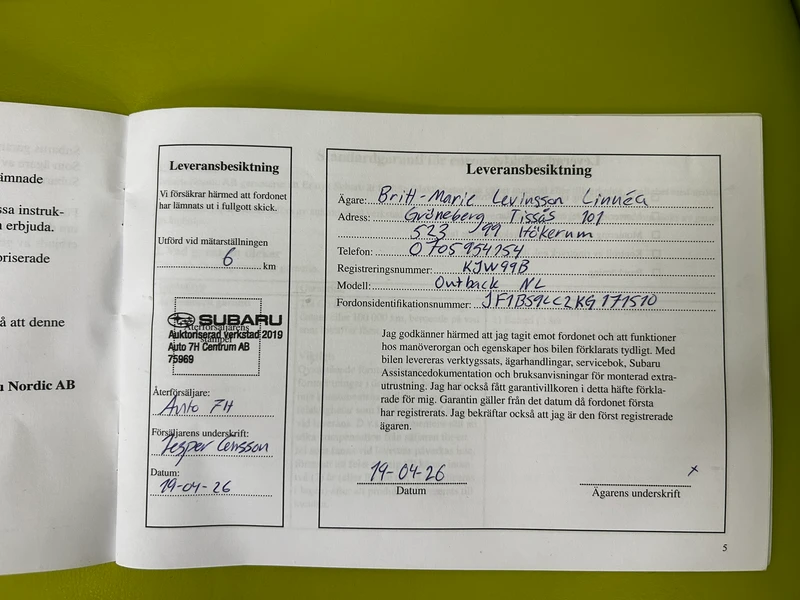 ämnade
ssa instruk-
n erbjuda.
oriserade
å att denne
u Nordic AB
Leveransbesiktning
Vi försäkrar härmed att fordonet
har lämnats ut i fullgott skick.
Utförd vid mätarställningen
6 km
SUBARU
Återförsäljarens
stämpel
Auktoriserad Verkstad 2019
Auto 7H Centrum AB
75969
Återförsäljare:
Auto 7H
Försäljarens underskrift:
Jesper
Datum:
19-04-26
Leveransbesiktning
Ägare: Britt-Marie Levinsson Linnéa
Adress: Gröneberg Tissås 101
523 99 Hökerum
Telefon: 0705954254
Registreringsnummer: KJW99B
Modell: Outback NL
Fordonsidentifikationsnummer: JF1BS9LC2KG171510
Jag godkänner härmed att jag tagit emot fordonet och att funktioner
hos manöverorgan och egenskaper hos bilen förklarats tydligt. Med
bilen levereras verktygssats, ägarhandlingar, servicebok, Subaru
Assistancedokumentation och bruksanvisningar för monterad extra-
utrustning. Jag har också fått garantivillkoren i detta häfte förkla-
rade för mig. Garantin gäller från det datum då fordonet första
har registrerats. Jag bekräftar också att jag är den först registrerade
ägaren.
19-04-26 x
Datum Ägarens underskrift
5